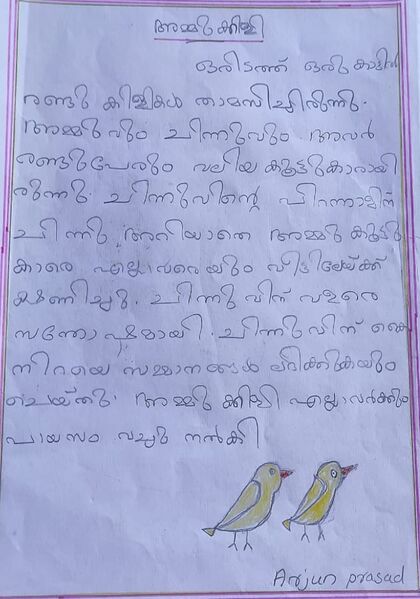 അമ്മുക്കിളി
ഒരിടത്ത് ഒരു കാട്ടിൽ
രണ്ടു കിളികൾ താമസിച്ചിരുന്നു.
അമ്മുവും ചിന്നുവും. അവർ
രണ്ടുപേരും വലിയ കൂട്ടുകാരായി
രുന്നു. ചിന്നുവിന്റെ പിറന്നാളിന്
ചിന്നു അറിയാതെ അമ്മു കൂട്ടു
കാരെ എല്ലാവരെയും വീട്ടിലേയ്ക്ക്
ക്ഷണിച്ചു. ചിന്നുവിന് വളരെ
സന്തോഷമായി. ചിന്നുവിന് കൈ
നിറയെ സമ്മാനങ്ങൾ ലഭിക്കുകയും
ചെയ്തു. അമ്മുക്കിളി എല്ലാവർക്കും
പായസം വച്ചു നൽകി
Arjun prasad